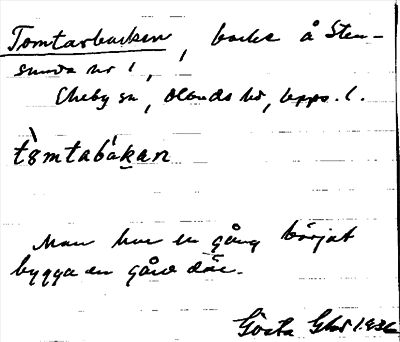 Tomtarbacken, backe å Sten-
sunda nr 1,
Ekeby sn, Olands hd, Upps. l.
tòmtabákan
Man har en gång börjat
bygga en gård där.
Gösta 1936